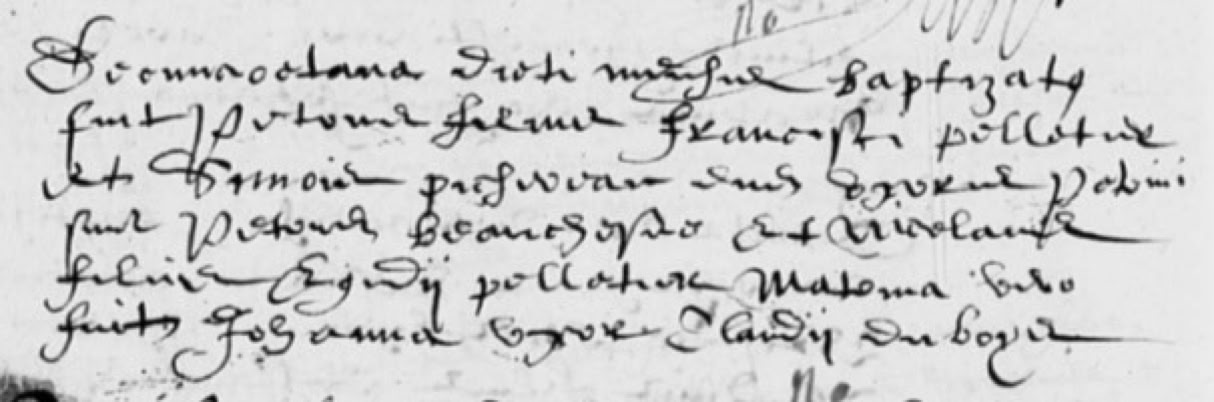 Decima octava dicti mensis baptizatus
fuit Petrus filius Francisci pelletier
et eius uxoris Patrini
sunt Petrus beauchesne Et Nicolaus
filius Egidij pelletier Matrina vero
fuit Johanna uxor Claudij du boys